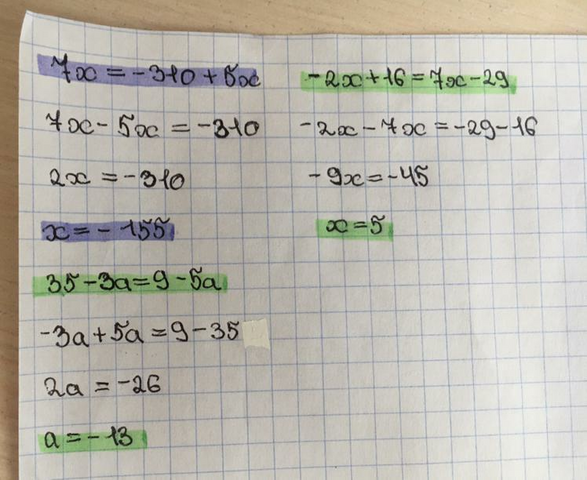 7x = -310 + 5x
7x - 5x = -310
2x = -310
x = -155
35 - 3a = 9 - 5a
-3a + 5a = 9 - 35
2a = -26
a = -13
-2x + 16 = 7x - 29
-2x - 7x = -29 - 16
-9x = -45
x = 5